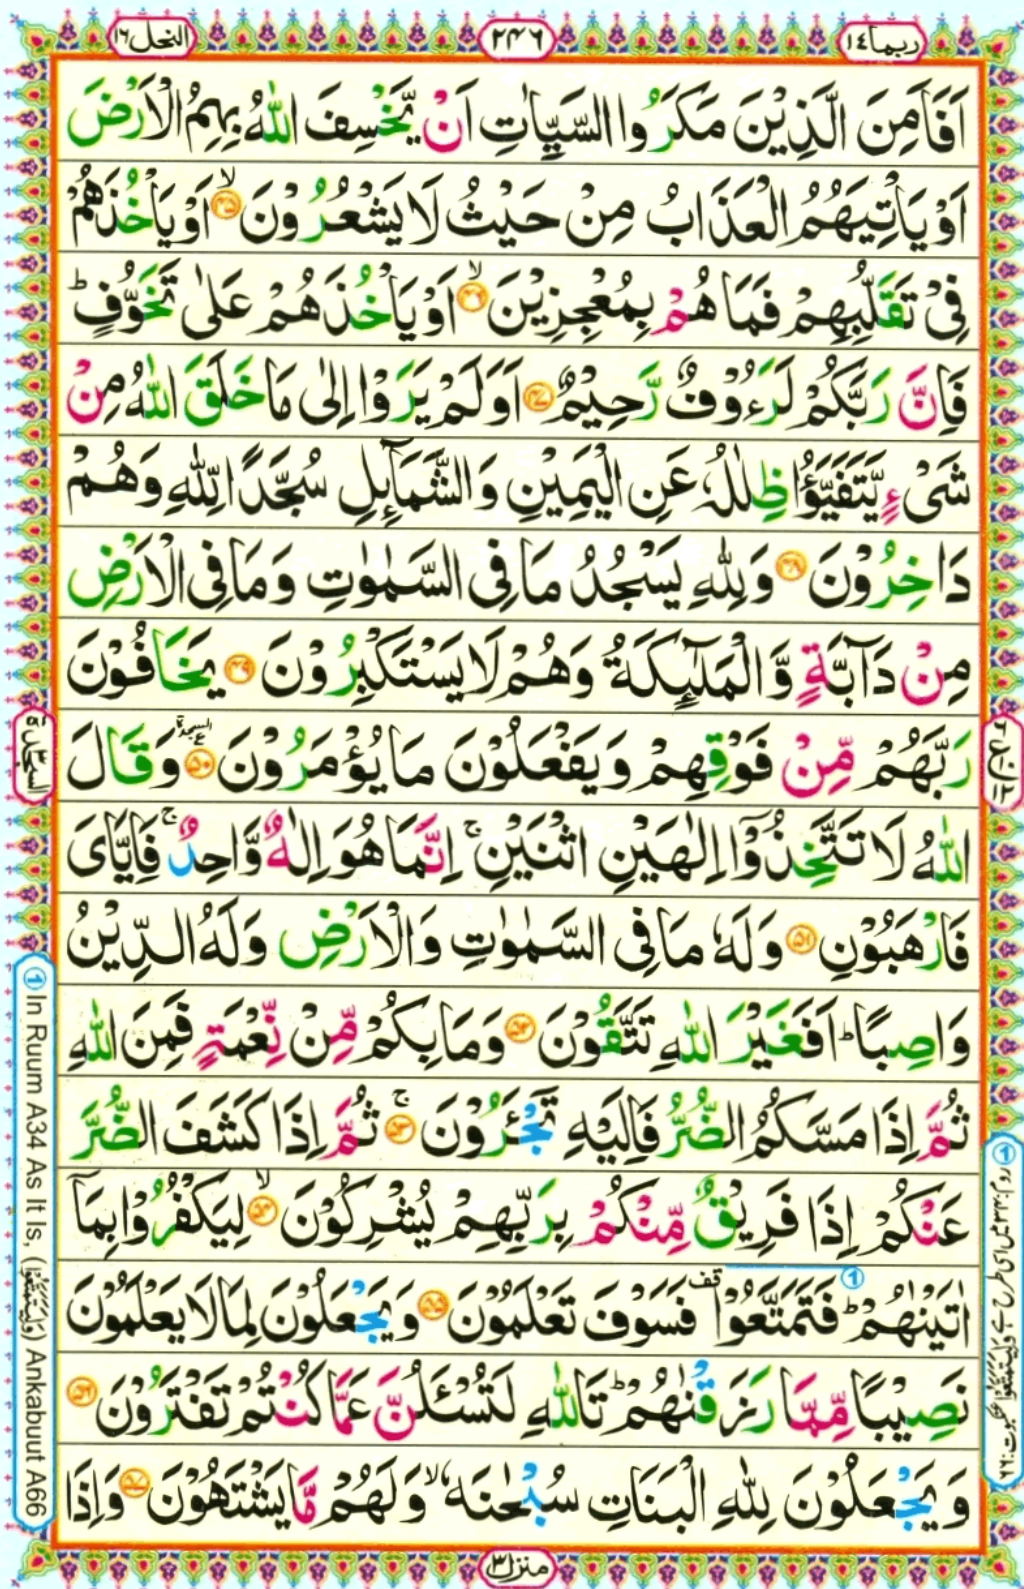 ربما ١٤
٢٤٦
النحل ١٦
اَفَاَمِنَ الَّذِيْنَ مَكَرُوا السَّيِّاٰتِ اَنْ يَّخْسِفَ اللّٰهُ بِهِمُ الْاَرْضَ
اَوْ يَاْتِيَهُمُ الْعَذَابُ مِنْ حَيْثُ لَا يَشْعُرُوْنَ ۙ‏﴿۴۵﴾ اَوْ يَاْخُذَهُمْ
فِىْ تَقَلُّبِهِمْ فَمَا هُمْ بِمُعْجِزِيْنَ ۙ‏﴿۴۶﴾ اَوْ يَاْخُذَهُمْ عَلٰى تَخَوُّفٍ ؕ
فَاِنَّ رَبَّكُمْ لَرَءُوْفٌ رَّحِيْمٌ ﴿۴۷﴾ اَوَلَمْ يَرَوْا اِلٰى مَا خَلَقَ اللّٰهُ مِنْ
شَىْءٍ يَّتَفَيَّؤُا ظِلٰلُهٗ عَنِ الْيَمِيْنِ وَالشَّمَآئِلِ سُجَّدًا لِّلّٰهِ وَهُمْ
دَاخِرُوْنَ ﴿۴۸﴾ وَلِلّٰهِ يَسْجُدُ مَا فِى السَّمٰوٰتِ وَمَا فِى الْاَرْضِ
مِنْ دَآبَّةٍ وَّالْمَلٰٓئِكَةُ وَهُمْ لَا يَسْتَكْبِرُوْنَ ﴿۴۹﴾ يَخَافُوْنَ
رَبَّهُمْ مِّنْ فَوْقِهِمْ وَيَفْعَلُوْنَ مَا يُؤْمَرُوْنَ ۩ ﴿۵۰﴾ وَقَالَ
اللّٰهُ لَا تَتَّخِذُوْۤا اِلٰهَيْنِ اثْنَيْنِ ۚ اِنَّمَا هُوَ اِلٰهٌ وَّاحِدٌ ۚ فَاِيَّاىَ
فَارْهَبُوْنِ ﴿۵۱﴾ وَلَهٗ مَا فِى السَّمٰوٰتِ وَالْاَرْضِ وَلَهُ الدِّيْنُ
وَاصِبًا ؕ اَفَغَيْرَ اللّٰهِ تَتَّقُوْنَ ﴿۵۲﴾ وَمَا بِكُمْ مِّنْ نِّعْمَةٍ فَمِنَ اللّٰهِ
ثُمَّ اِذَا مَسَّكُمُ الضُّرُّ فَاِلَيْهِ تَجْئَرُوْنَ ۚ‏﴿۵۳﴾ ثُمَّ اِذَا كَشَفَ الضُّرَّ
عَنْكُمْ اِذَا فَرِيْقٌ مِّنْكُمْ بِرَبِّهِمْ يُشْرِكُوْنَ ۙ‏﴿۵۴﴾ لِيَكْفُرُوْا بِمَاۤ
اٰتَيْنٰهُمْ ؕ فَتَمَتَّعُوْا قف فَسَوْفَ تَعْلَمُوْنَ ﴿۵۵﴾ وَيَجْعَلُوْنَ لِمَا لَا يَعْلَمُوْنَ
نَصِيْبًا مِّمَّا رَزَقْنٰهُمْ ؕ تَاللّٰهِ لَتُسْئَلُنَّ عَمَّا كُنْتُمْ تَفْتَرُوْنَ ﴿۵۶﴾
وَيَجْعَلُوْنَ لِلّٰهِ الْبَنَاتِ سُبْحٰنَهٗ ۙ وَلَهُمْ مَّا يَشْتَهُوْنَ ﴿۵۷﴾ وَاِذَا
منزل ٣
① In Ruum A34 As It Is, (وَلِيَتَمَتَّعُوْا) Ankabuut A66